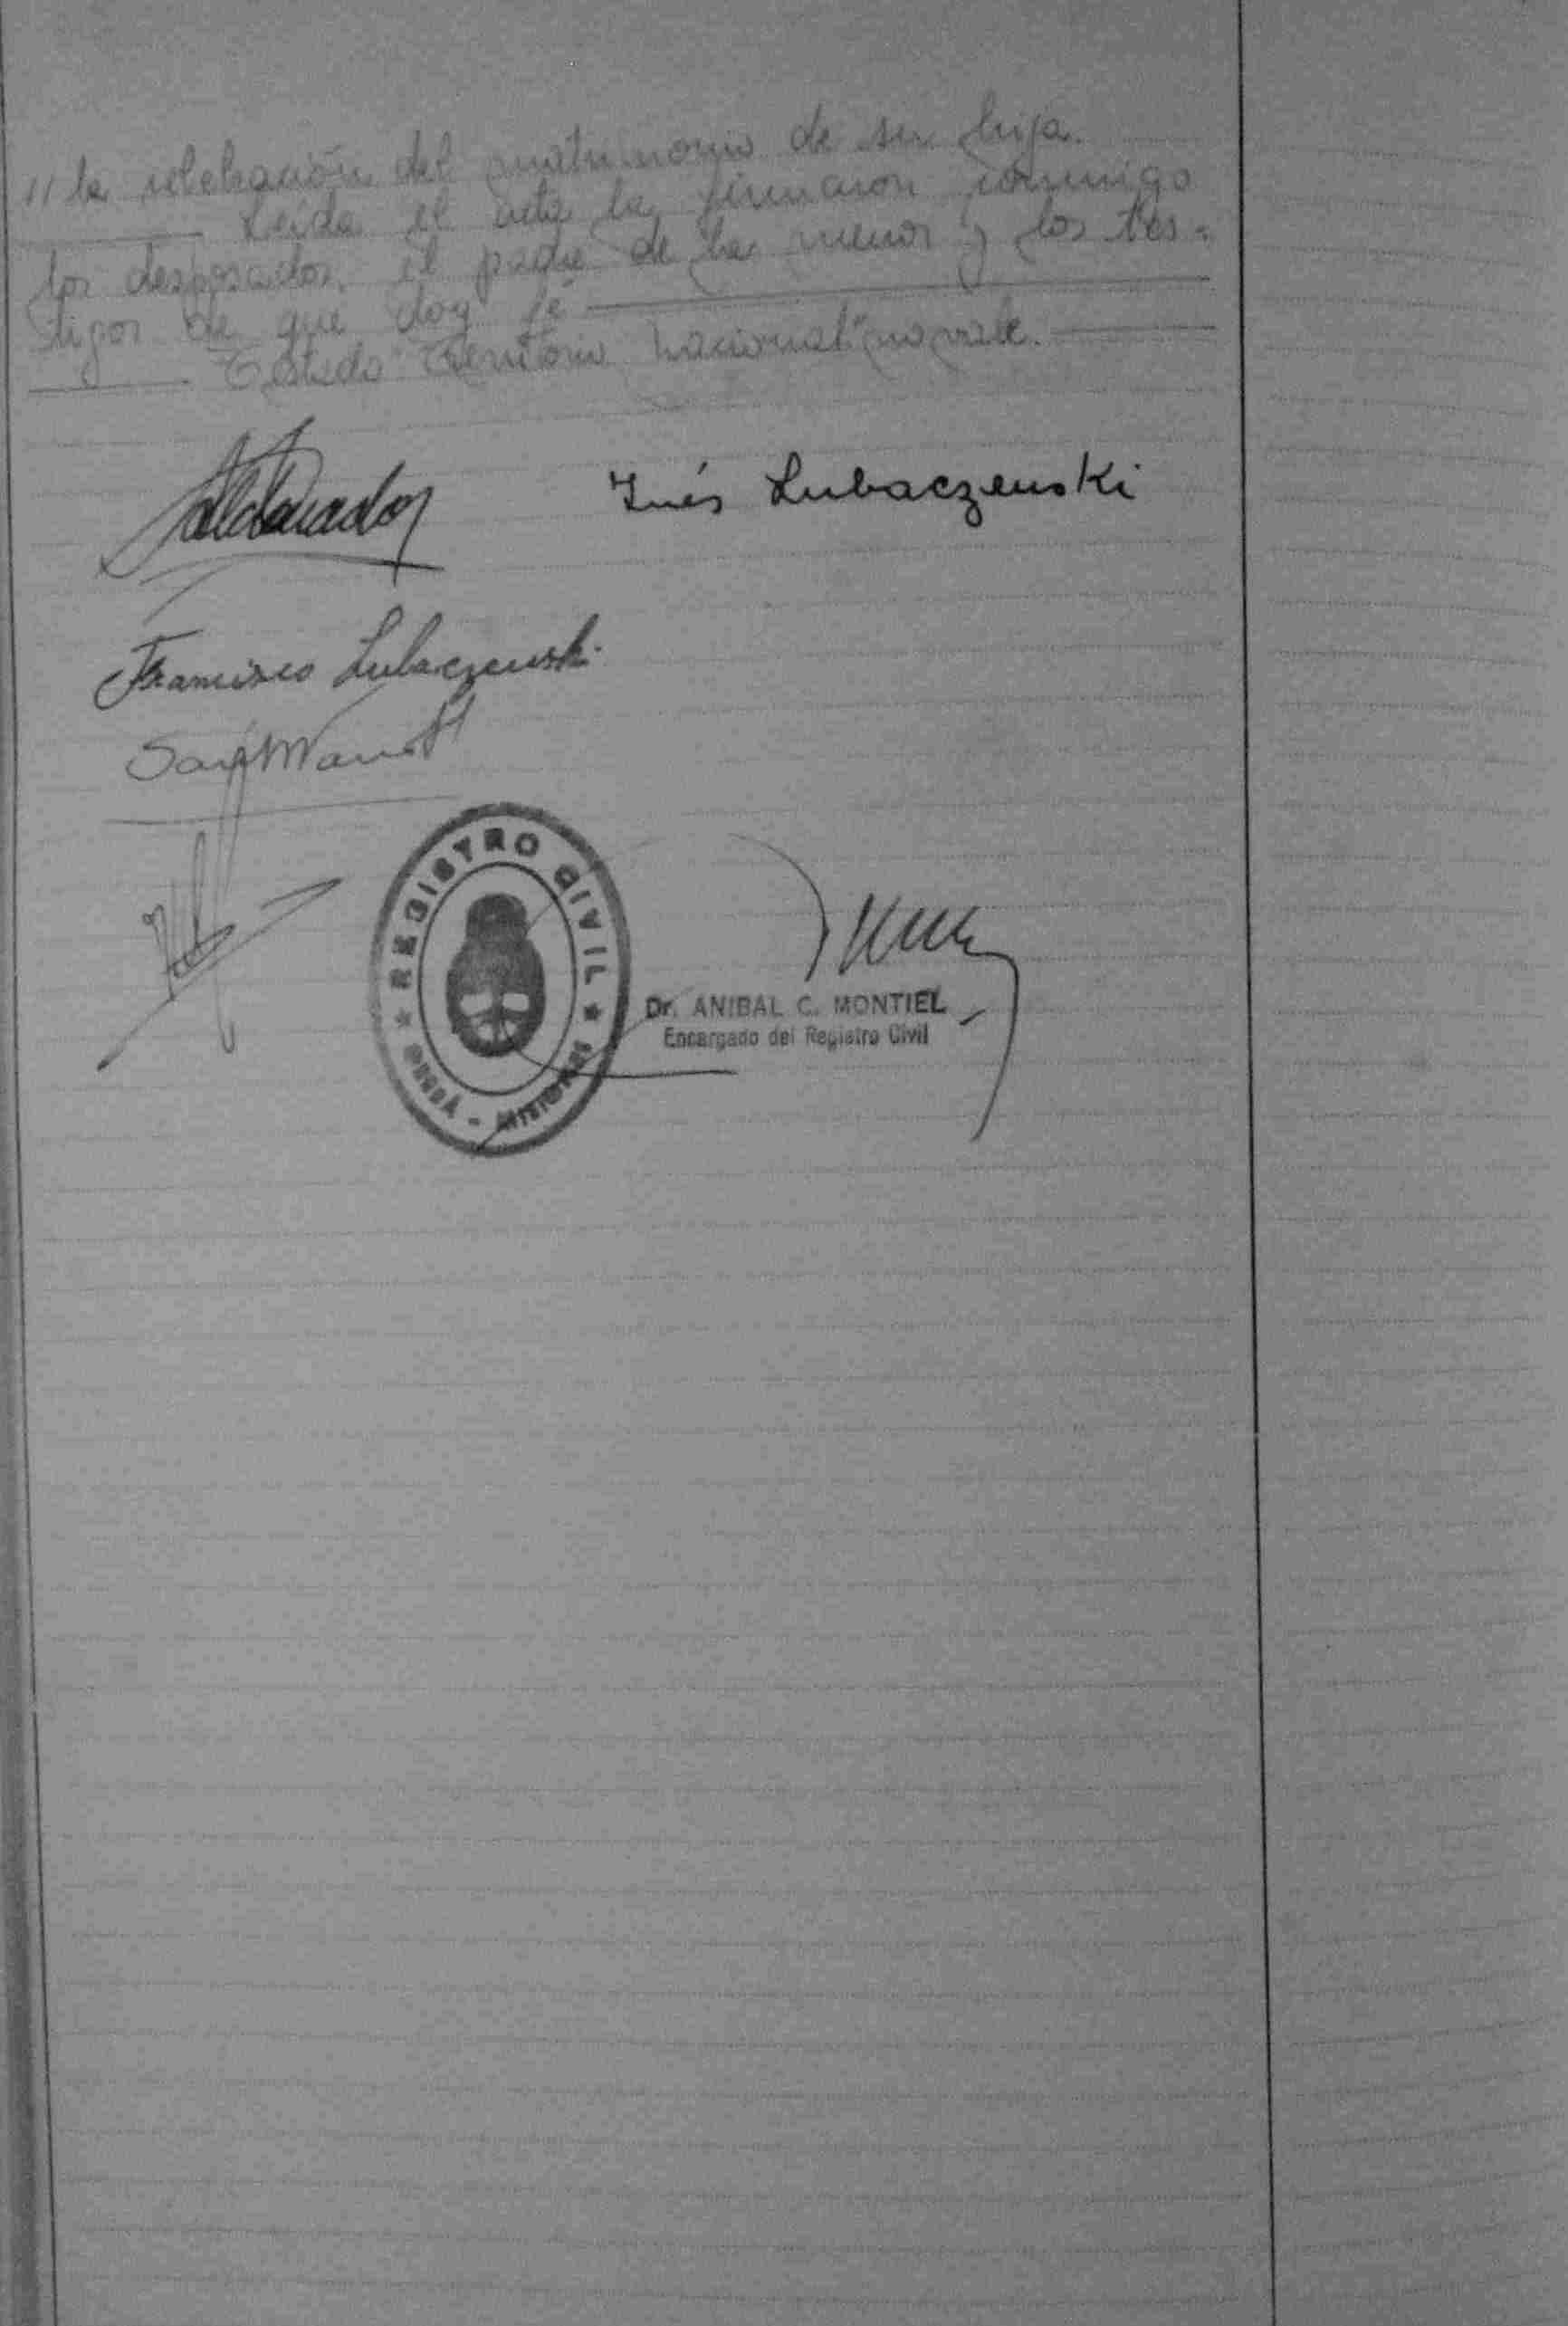 // la celebración del matrimonio de su hija.
Leída el acta la firmaron conmigo
los desposados, el padre de la menor y los tes-
tigos de que doy fé
Testado "Territorio Nacional" no vale.
Inés Lubaczewski
Francisco Lubaczewski
REGISTRO CIVIL
MISIONES
Dr. ANIBAL C. MONTIEL
Encargado del Registro Civil